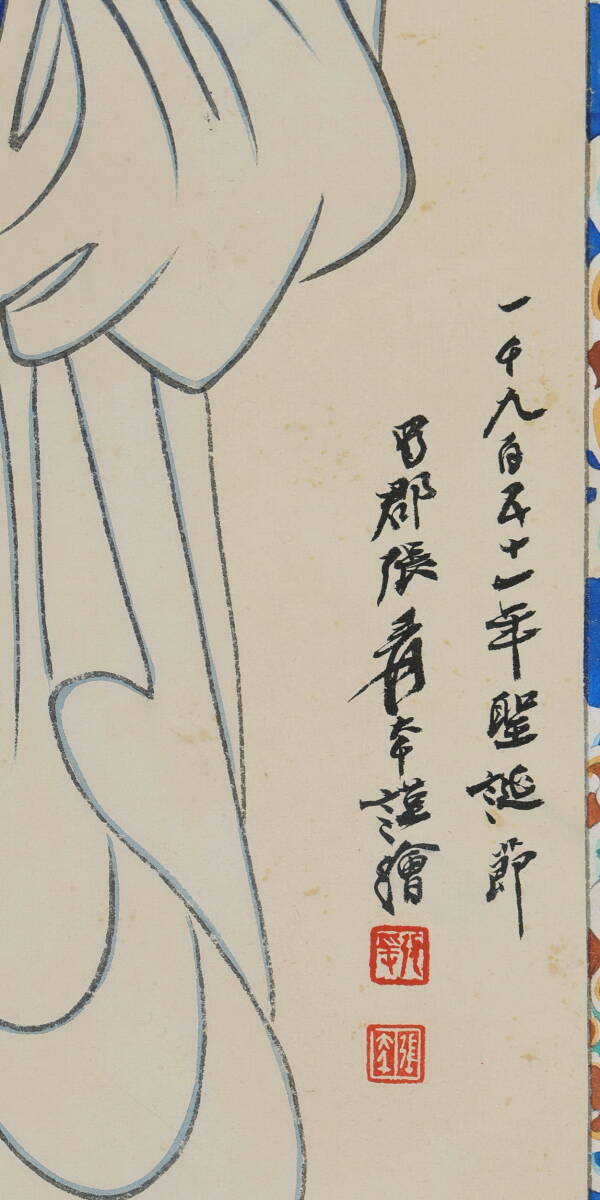 一千九百五十一年聖誕節
蜀郡張爰本謹繪